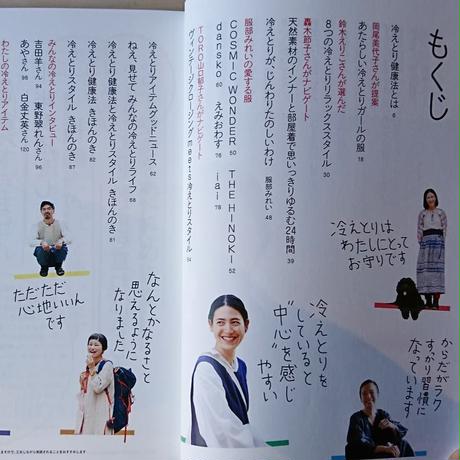 もくじ
冷えとり健康法とは 6
岡尾美代子さんが提案
あたらしい冷えとりガールの服 18
鈴木えりこさんが選んだ
8つの冷えとりラックススタイル 30
轟木節子さんがナビゲート
天然素材のインナーと部屋着で思いっきりゆるむ24時間 39
冷えとりが、じんわりたのしいわけ 服部みれい 48
服部みれいの愛する服
COSMIC WONDER 50 THE HINOKI 52
dansko 60 えみおわす 76 iai 78
TORO山口郁子さんがナビゲート
ヴィンテージクロージング meets 冷えとりスタイル 54
冷えとりアイテムグッドニュース 62
ねえ、見せて みんなの冷えとりライフ 68
冷えとり健康法と冷えとりスタイル きほんのき 81
冷えとり健康法 きほんのき 82
冷えとりスタイル きほんのき 87
みんなの冷えとりインタビュー
吉田羊さん 94 東野翠れんさん 96
あやさん 98 白金丈英さん 120
わたしの冷えとりアイテム
冷えとりは
わたしにとって
お守りです
からだがラク
すっかり習慣に
なっています
冷えとりを
していると
“中心”を感じ
やすい
なんとかなるさと
思えるように
なりました
ただただ
心地いいん
です